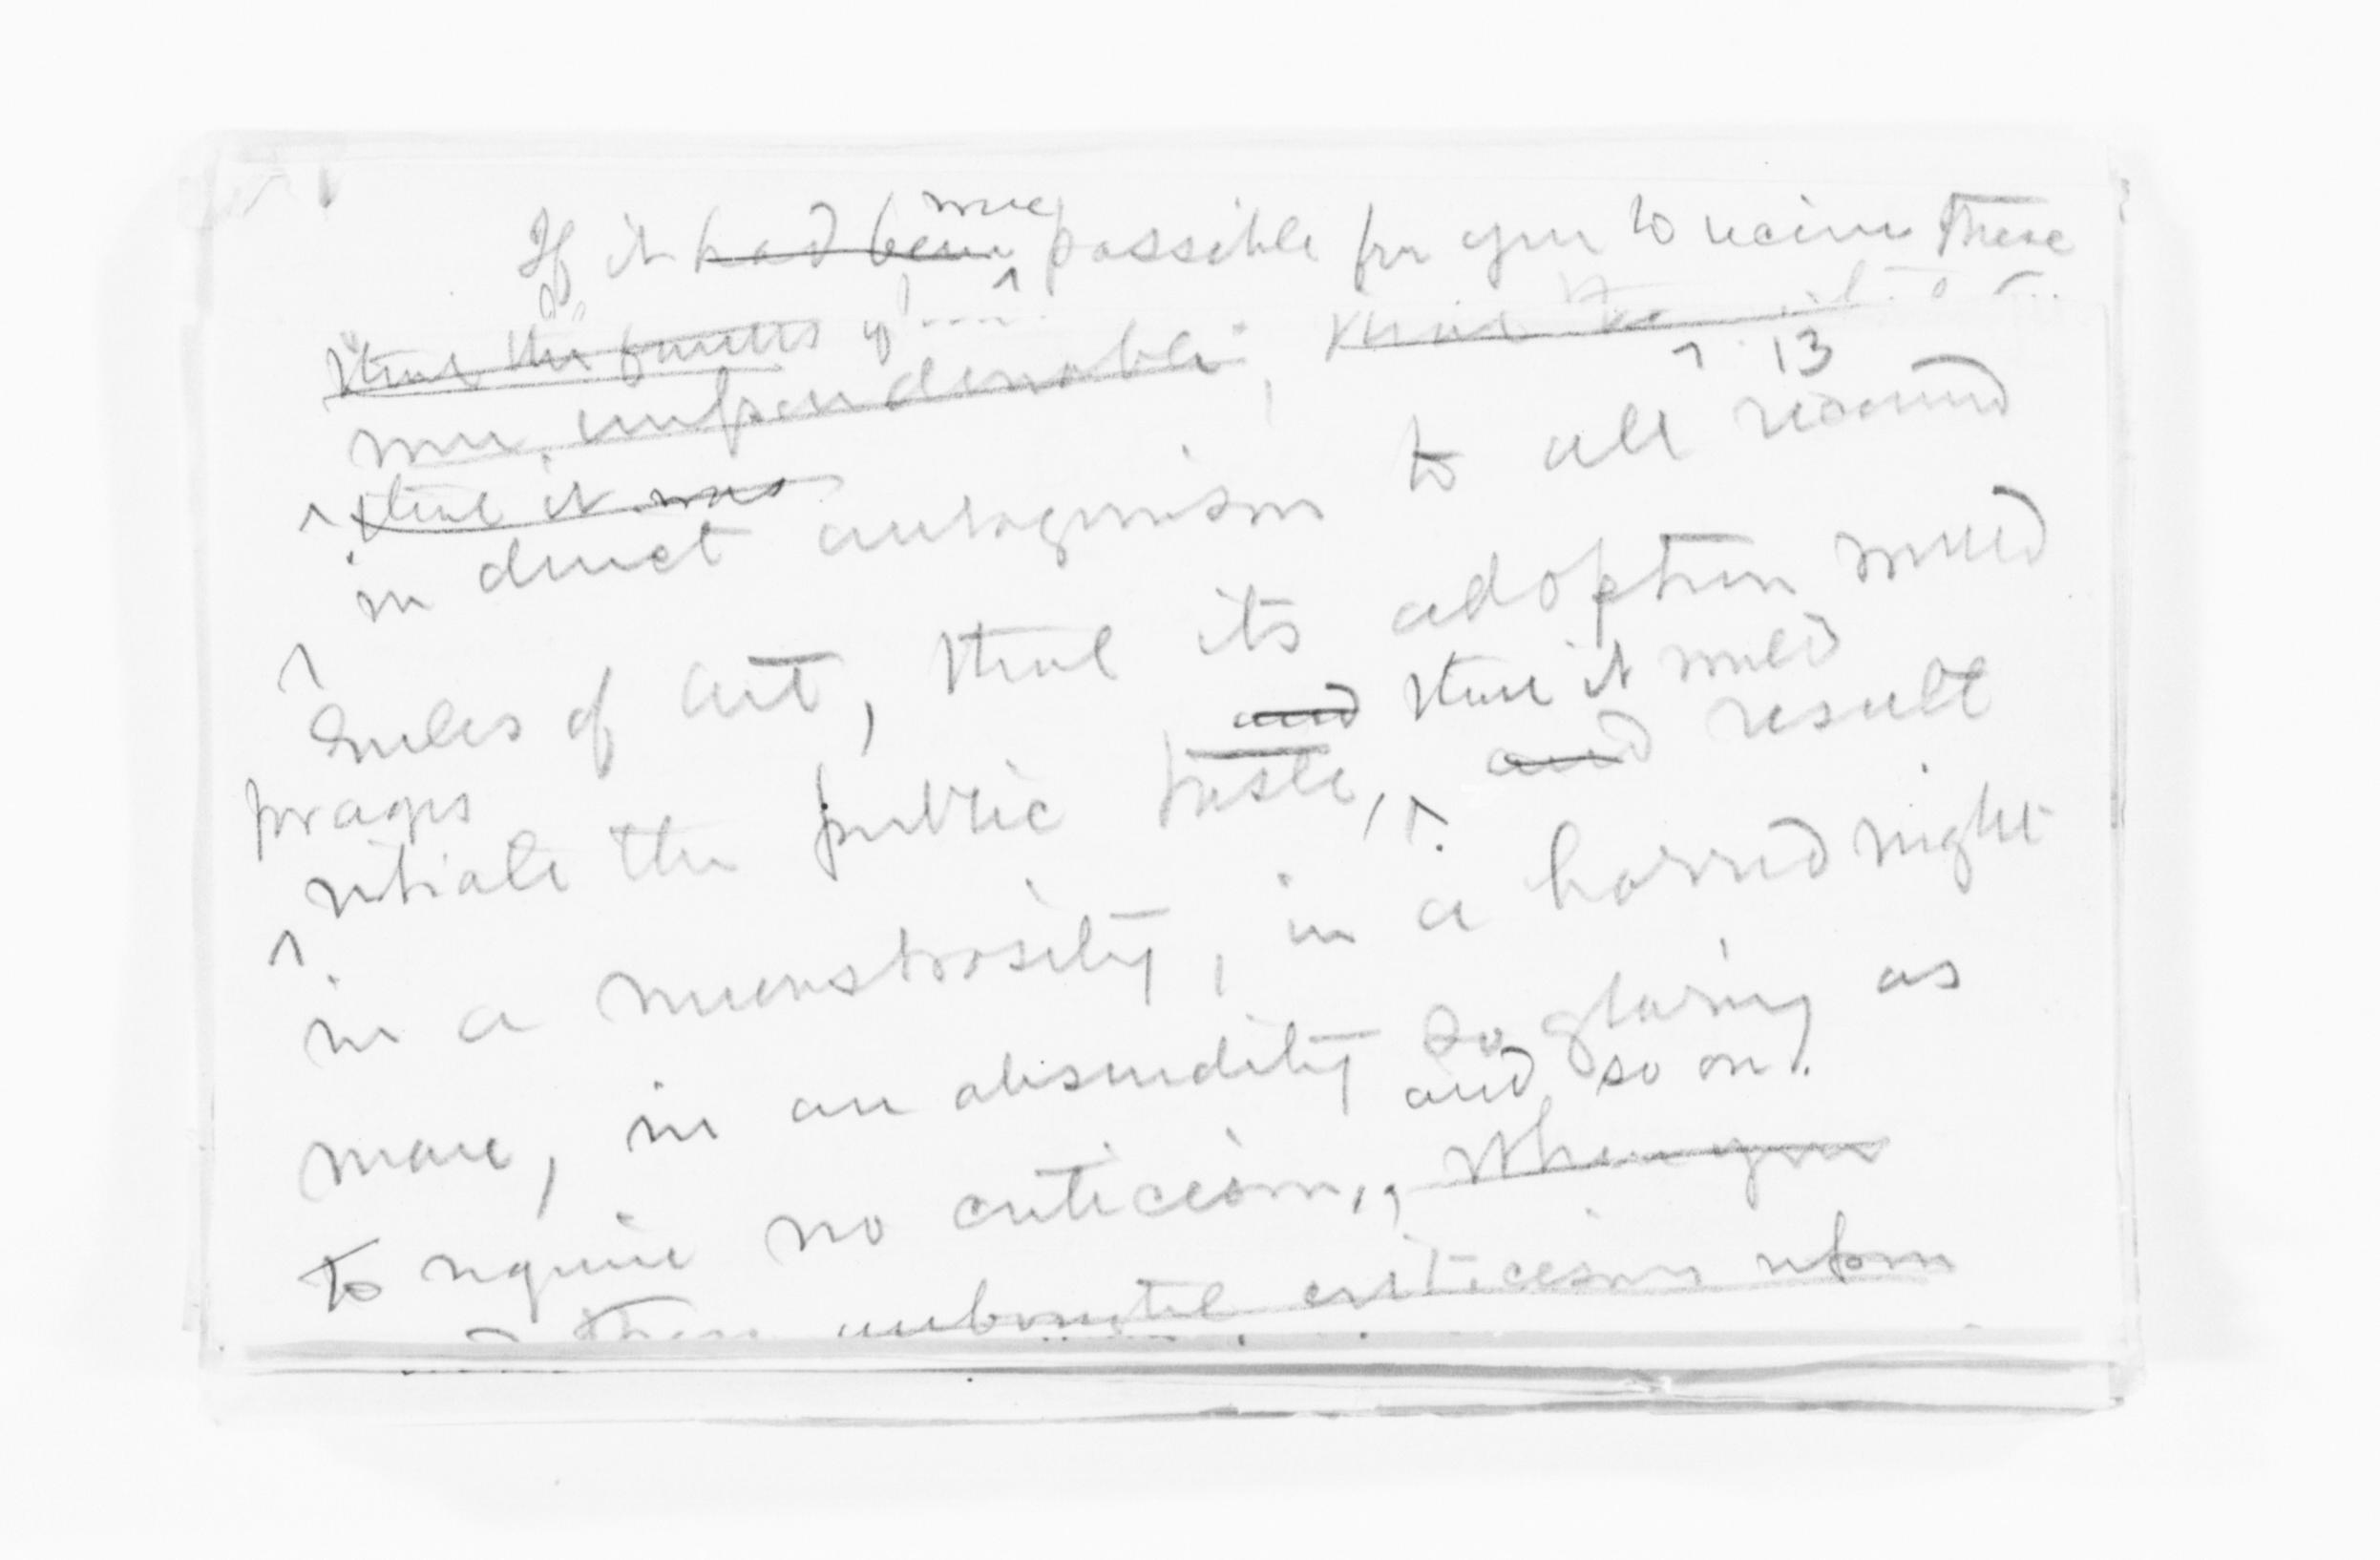 were
If it had been possible for you to receive these
that the faults of
were unpardonable, that
13
that it was
in direct antagonism to all received
rules of art, that its adoption would
and that it would
perhaps
vitiate the public taste, and result
in a monstrosity, in a horrid night
mare, in an absurdity so glaring as
and so on.
to require no criticism, When you
these criticisms upon